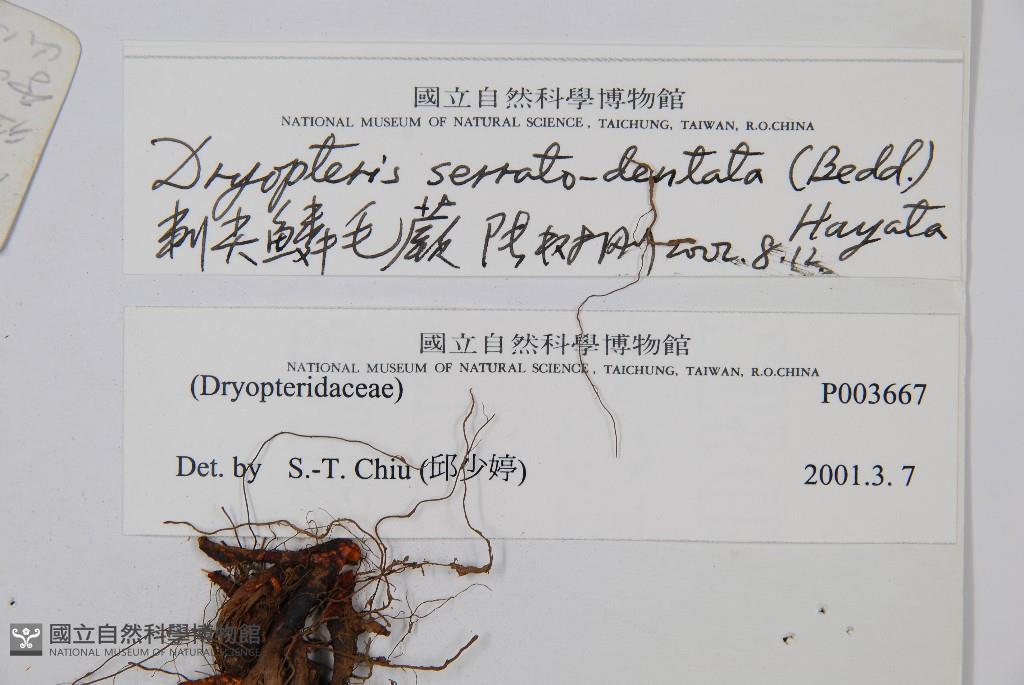 國立自然科學博物館
NATIONAL MUSEUM OF NATURAL SCIENCE, TAICHUNG, TAIWAN, R.O.CHINA
Dryopteris serrato-dentata (Bedd.)
Hayata
刺尖鱗毛蕨 2002.8.12.
國立自然科學博物館
NATIONAL MUSEUM OF NATURAL SCIENCE, TAICHUNG, TAIWAN, R.O.CHINA
(Dryopteridaceae) P003667
Det. by S.-T. Chiu (邱少婷) 2001.3. 7
國立自然科學博物館
NATIONAL MUSEUM OF NATURAL SCIENCE